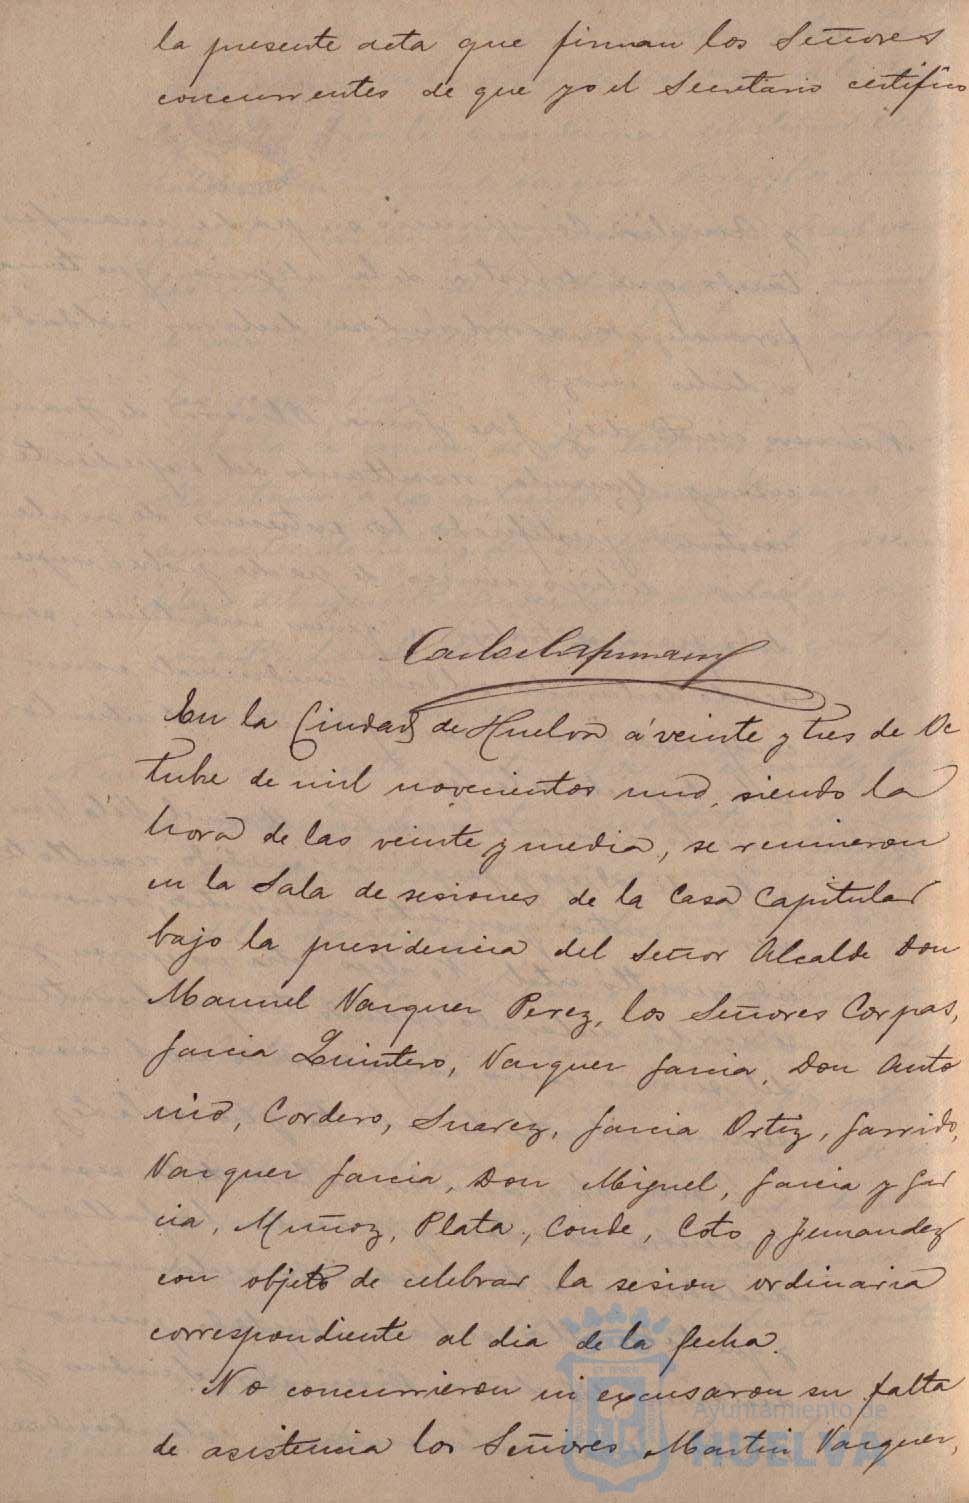 la presente acta que firman los Señores
concurrentes de que yo el Secretario certifico
En la Ciudad de Huelva á veinte y tres de Oc
tubre de mil novecientos uno, siendo la
hora de las veinte y media, se reunieron
en la Sala de sesiones de la Casa Capitular
bajo la presidencia del Señor Alcalde Don
Manuel Vazquez Perez, los Señores Corpas,
Garcia Quintero, Vazquez Garcia, Don Anto
nio, Cordero, Suarez, Garcia Ortiz, Garrido,
Vazquez Garcia, Don Miguel, Garcia y Gar
cia, Muñoz, Plata, Conde, Coto y Fernandez
con objeto de celebrar la sesion ordinaria
correspondiente al dia de la fecha.
No concurrieron ni excusaron su falta
de asistencia los Señores Martin Vazquez,
Ayuntamiento de
HUELVA